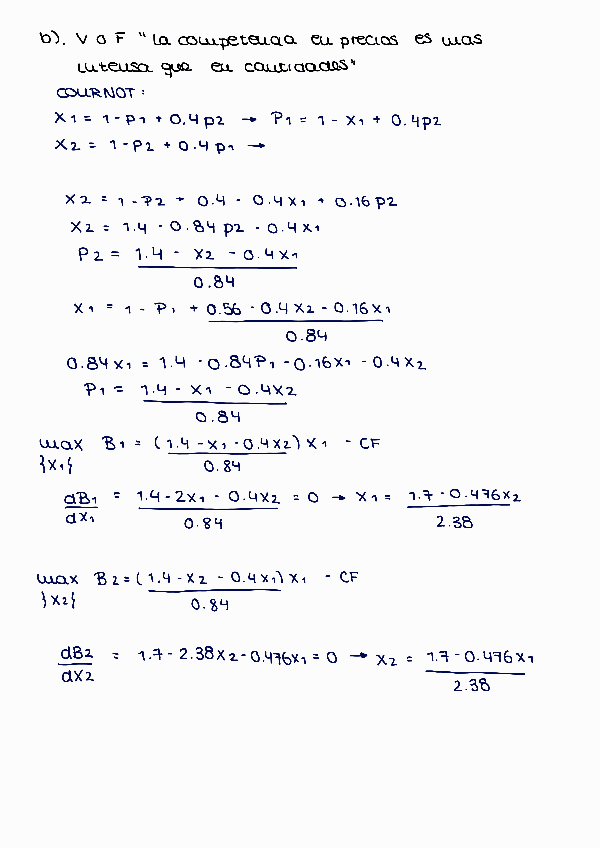 b). V o F "la competencia en precios es mas
intensa que en cantidades"
COURNOT:
x1 = 1 - p1 + 0.4 p2 → P1 = 1 - x1 + 0.4p2
x2 = 1 - p2 + 0.4 p1 →
x2 = 1 - P2 + 0.4 - 0.4x1 + 0.16 p2
x2 = 1.4 - 0.84 p2 - 0.4x1
P2 = 1.4 - x2 - 0.4x1
0.84
x1 = 1 - P1 + 0.56 - 0.4x2 - 0.16x1
0.84
0.84x1 = 1.4 - 0.84P1 - 0.16x1 - 0.4x2
P1 = 1.4 - x1 - 0.4x2
0.84
max B1 = (1.4 - x1 - 0.4x2) x1 - CF
}x1{ 0.84
dB1 = 1.4 - 2x1 - 0.4x2 = 0 → x1 = 1.7 - 0.476x2
dx1 0.84 2.38
max B2 = (1.4 - x2 - 0.4x1) x1 - CF
}x2{ 0.84
dB2 = 1.7 - 2.38x2 - 0.476x1 = 0 → x2 = 1.7 - 0.476x1
dx2 2.38